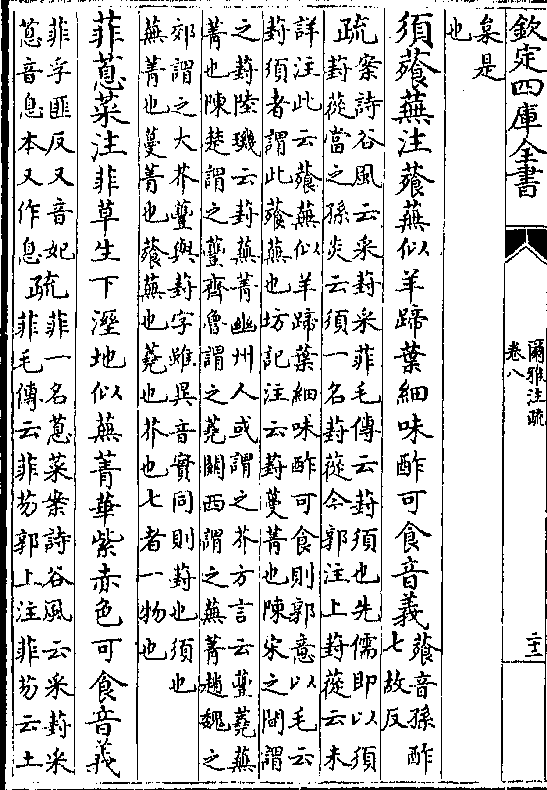 欽定四庫全書
爾雅注疏
卷八
枲是
也
須薞蕪注薞蕪似羊蹄葉細味酢可食音義
薞音孫酢
七故反
疏
案詩谷風云采葑采菲毛傳云葑須也先儒即以須
葑蓯當之孫炎云須一名葑蓯今郭注上葑蓯云未
詳注此云薞蕪似羊蹄葉細味酢可食則郭意以毛云
葑須者謂此薞蕪也坊記注云葑蔓菁也陳宋之間謂
之葑陸璣云葑蕪菁幽州人或謂之芥方言云蘴蕘蕪
菁也陳楚謂之蘴齊魯謂之蕘關西謂之蕪菁趙魏之
郊謂之大芥蘴與葑字雖異音實同則葑也須也
蕪菁也蔓菁也薞蕪也蕘也芥也七者一物也
菲蒠菜注菲草生下溼地似蕪菁華紫赤色可食音義
菲孚匪反又音妃
蒠音息本又作息
疏
菲一名蒠菜案詩谷風云采葑采
菲毛傳云菲芴郭上注菲芴云土